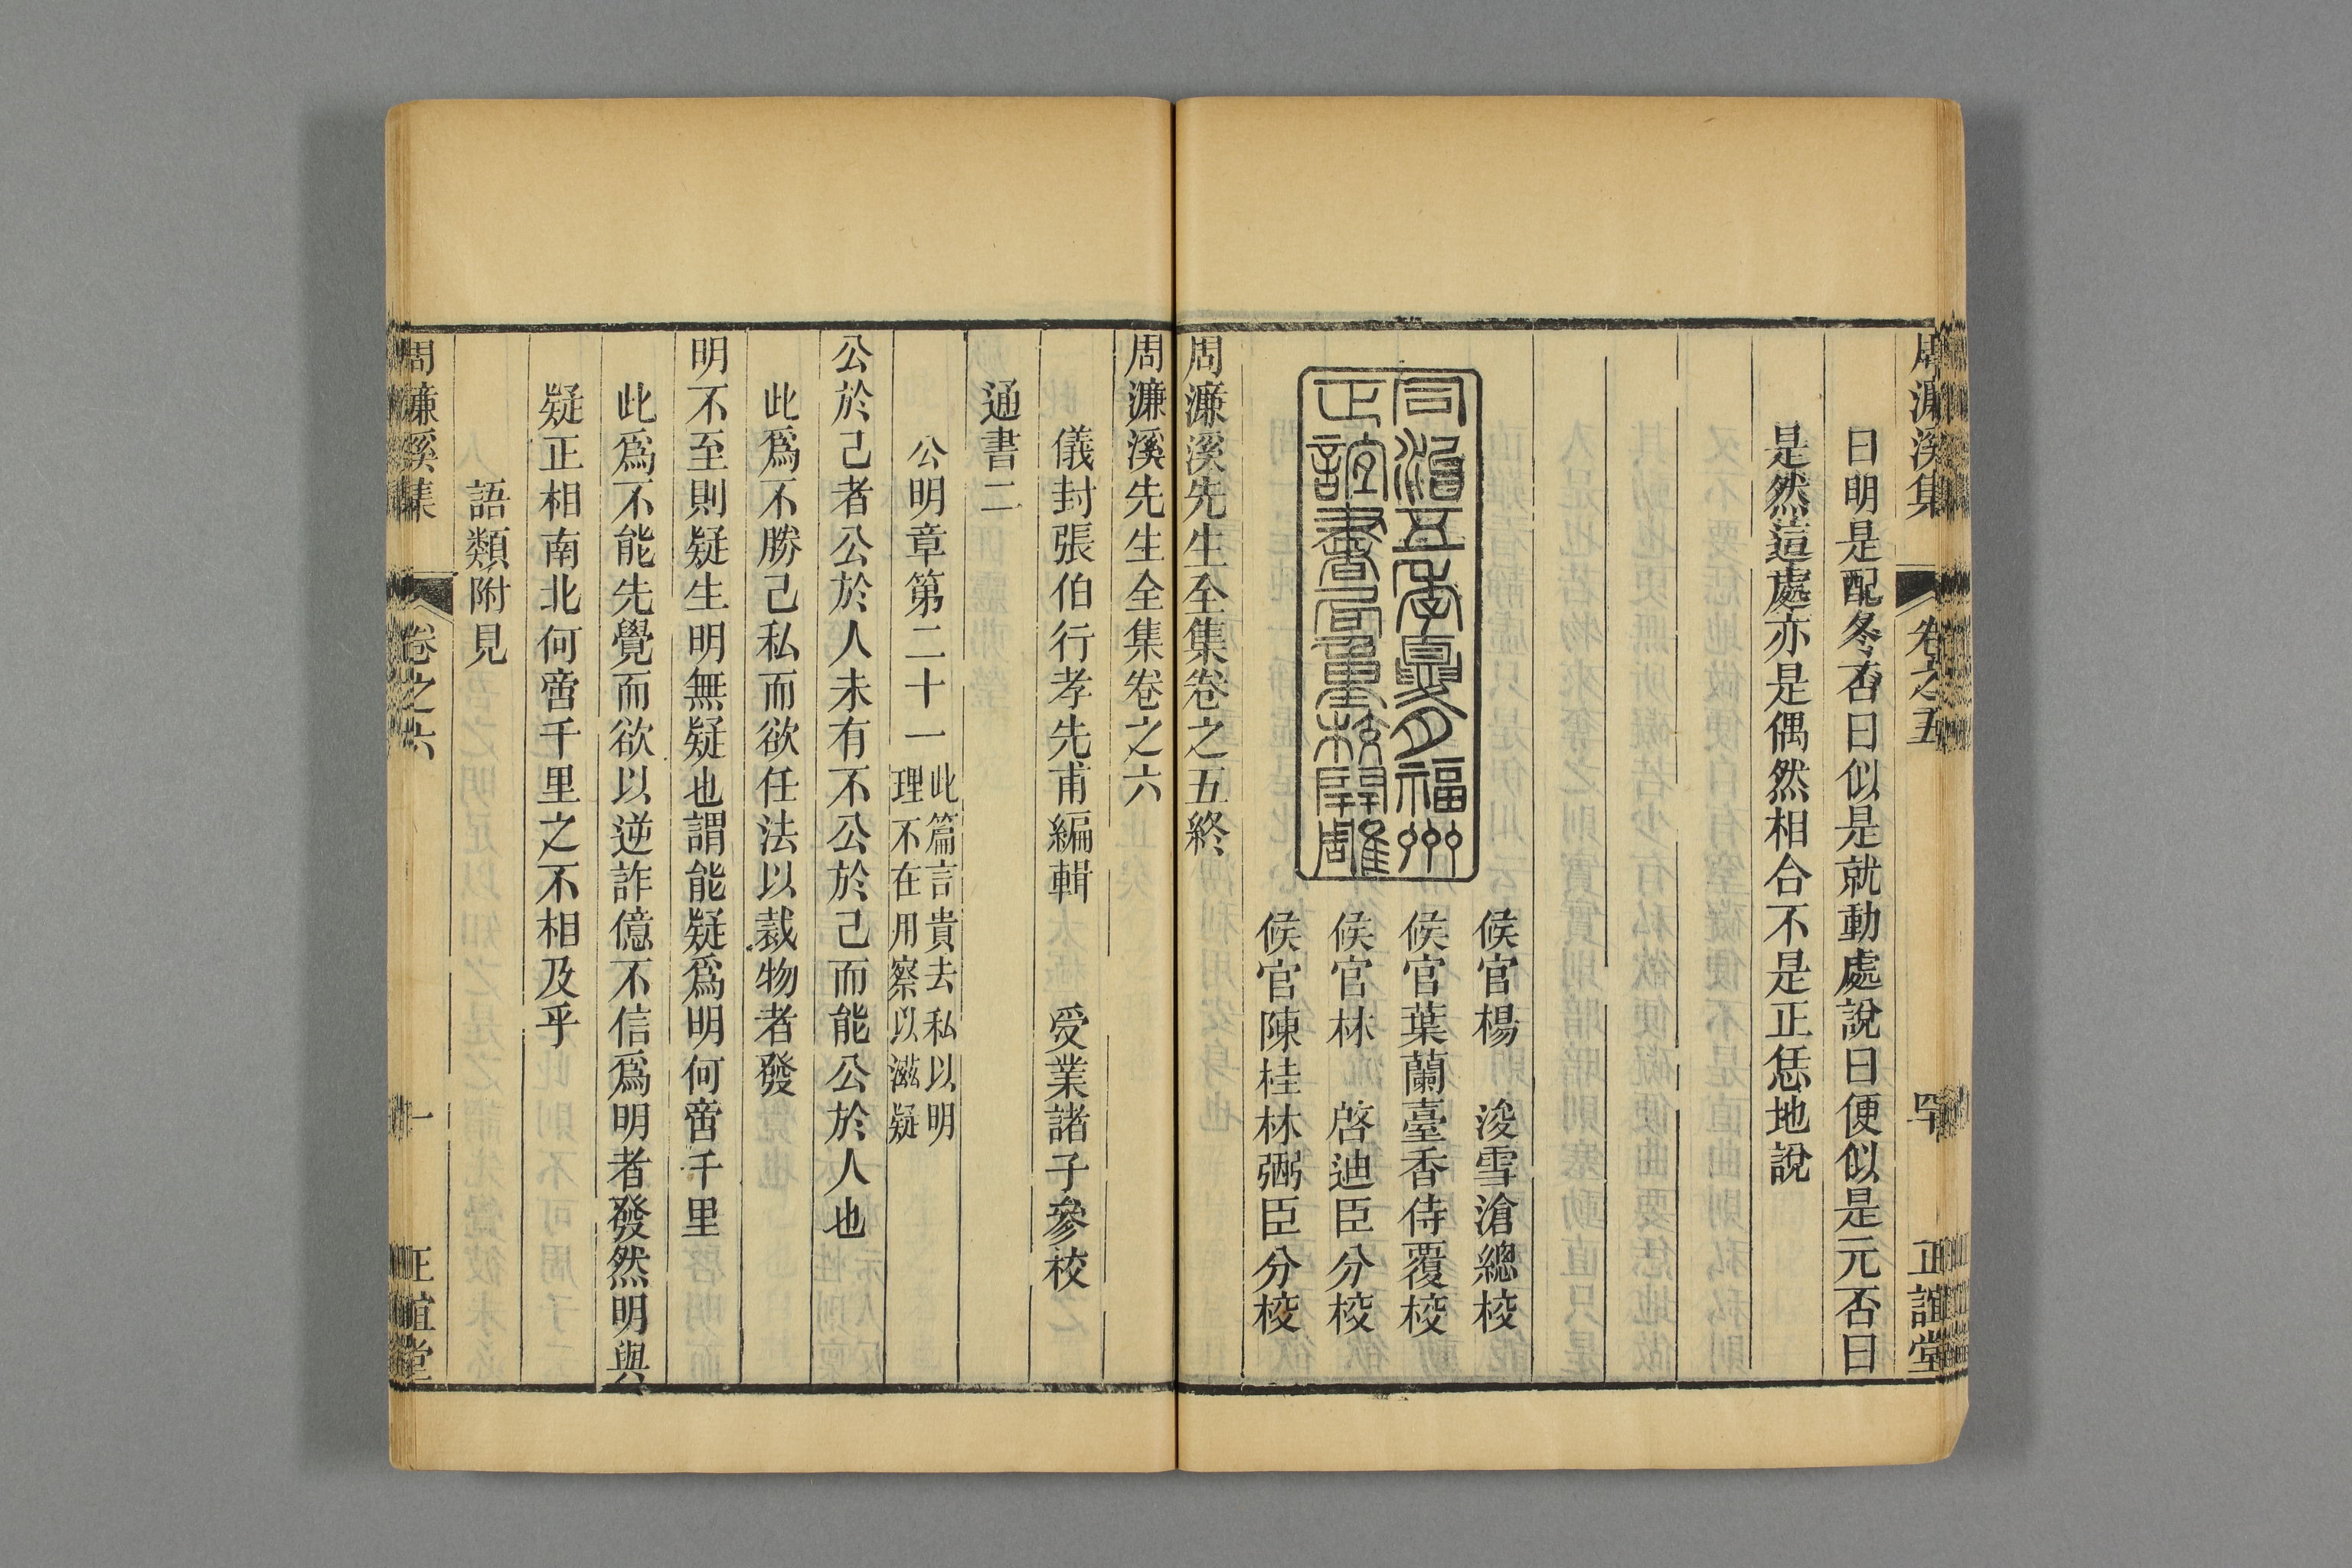 周濂溪集 卷之五 四 正誼堂
曰明是配冬否曰似是就動處說曰便似是元否曰
是然這處亦是偶然相合不是正恁地說
候官楊 浚雪滄總校
同治五年夏月福州
正誼書局重校開雕
候官葉蘭臺香侍覆校
候官林 啓迪臣分校
候官陳桂林弼臣分校
周濂溪先生全集卷之五終
周濂溪先生全集卷之六
儀封張伯行孝先甫編輯 受業諸子參校
通書二
公明章第二十一 此篇言貴去私以明
理不在用察以滋疑
公於己者公於人未有不公於己而能公於人也
此爲不勝己私而欲任法以裁物者發
明不至則疑生明無疑也謂能疑爲明何啻千里
此爲不能先覺而欲以逆詐億不信爲明者發然明與
疑正相南北何啻千里之不相及乎
語類附見
周濂溪集 卷之六 一 正誼堂